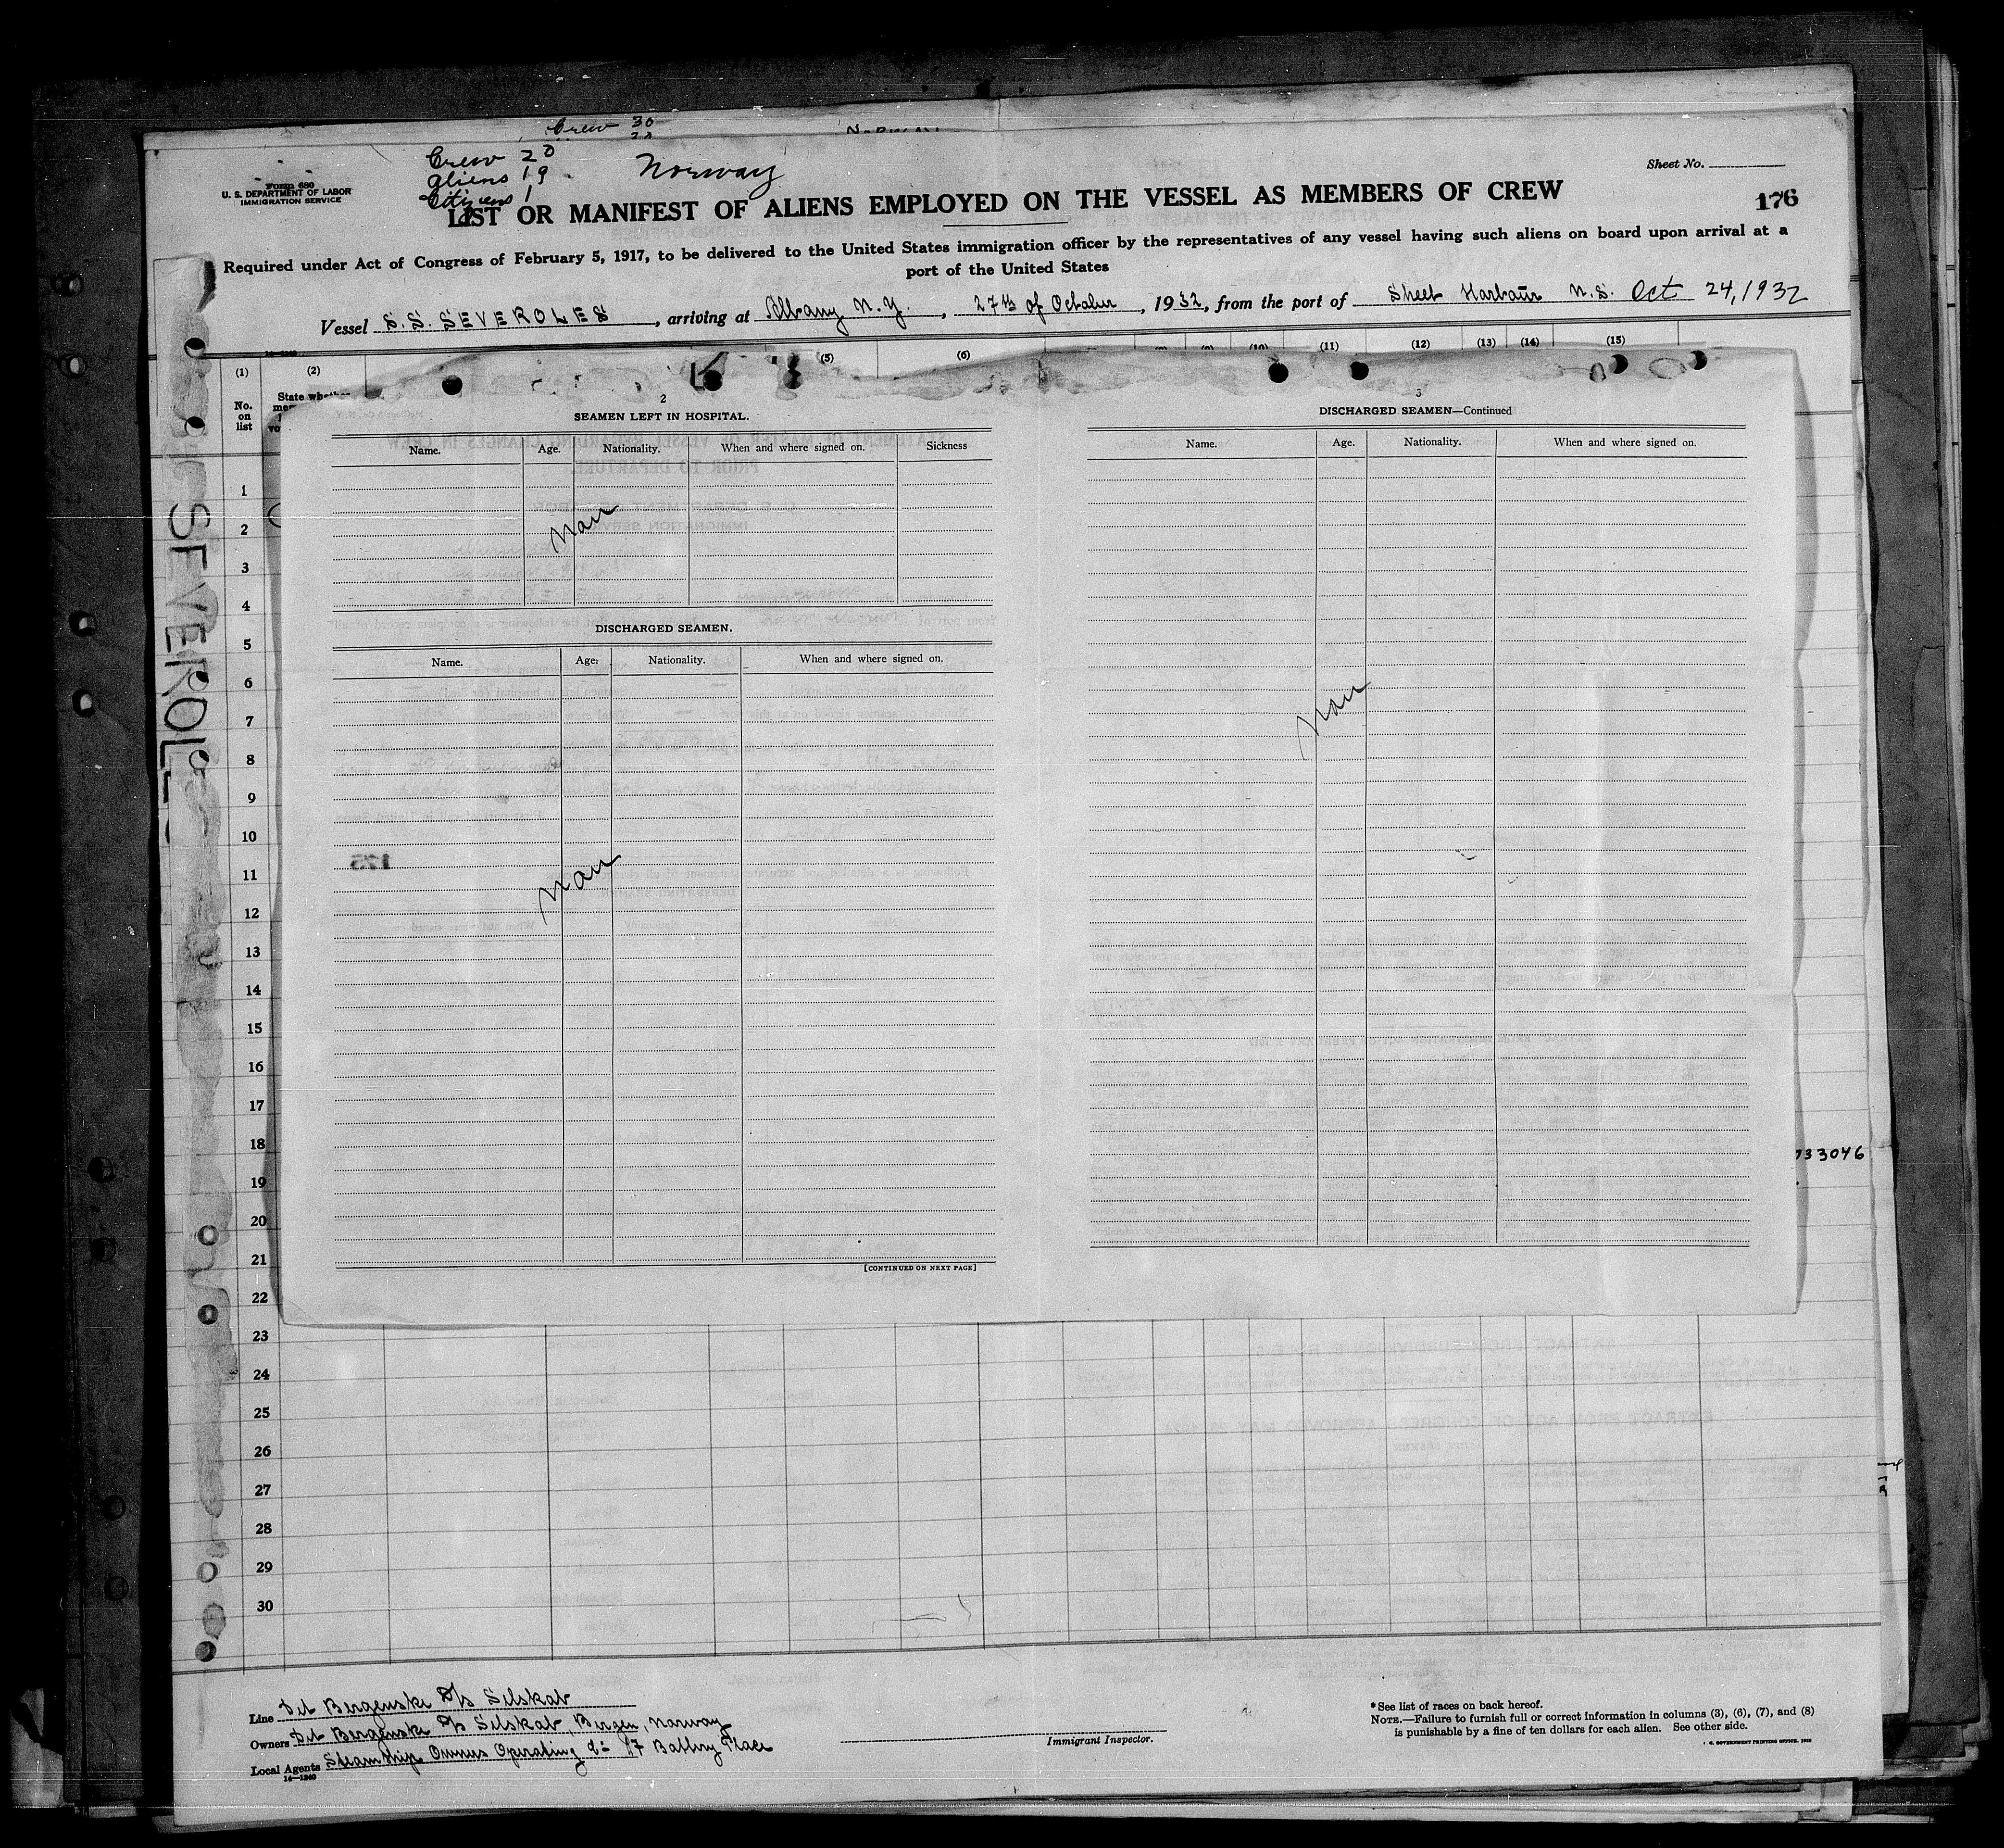 Crew 30
Crew 20
aliens 19
Citizens 1
Norway
Sheet No.
Form 680
U. S. DEPARTMENT OF LABOR
IMMIGRATION SERVICE
176
LIST OR MANIFEST OF ALIENS EMPLOYED ON THE VESSEL AS MEMBERS OF CREW
Required under Act of Congress of February 5, 1917, to be delivered to the United States immigration officer by the representatives of any vessel having such aliens on board upon arrival at a
port of the United States
Vessel S.S. SEVEROLES, arriving at Albany N.Y., 27th of October, 1932, from the port of Sheet Harbour N.S. Oct 24, 1932
(1) (2) (5) (6) (10) (11) (12) (13) (14) (15)
No.
on
list
State
2
SEAMEN LEFT IN HOSPITAL.
Name. Age. Nationality. When and where signed on. Sickness
DISCHARGED SEAMEN.
Name. Age. Nationality. When and where signed on.
[CONTINUED ON NEXT PAGE]
3
DISCHARGED SEAMEN—Continued
Name. Age. Nationality. When and where signed on.
SEVEROL
1
2
3
4
5
6
7
8
9
10
11
12
13
14
15
16
17
18
19
20
21
22
23
24
25
26
27
28
29
30
733046
Line Det Bergenske D/s Selskab
Owners Det Bergenske D/s Selskab, Bergen, Norway
Local Agents Steamship Owners Operating Co 17 Battery Place
14—1240
Immigrant Inspector.
*See list of races on back hereof.
NOTE.—Failure to furnish full or correct information in columns (3), (6), (7), and (8)
is punishable by a fine of ten dollars for each alien. See other side.